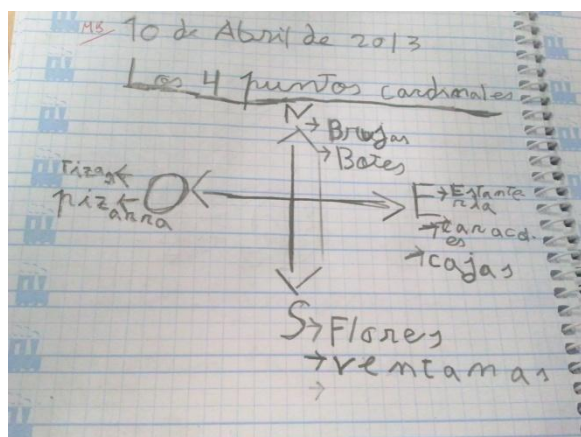 MB 10 de Abril de 2013
Los 4 puntos cardinales
N → Brujas
→ Botes
Tizas ←
pizarra ← O
E → Estante
ria
→ caracol.
es
→ cajas
S → Flores
→ ventanas
→